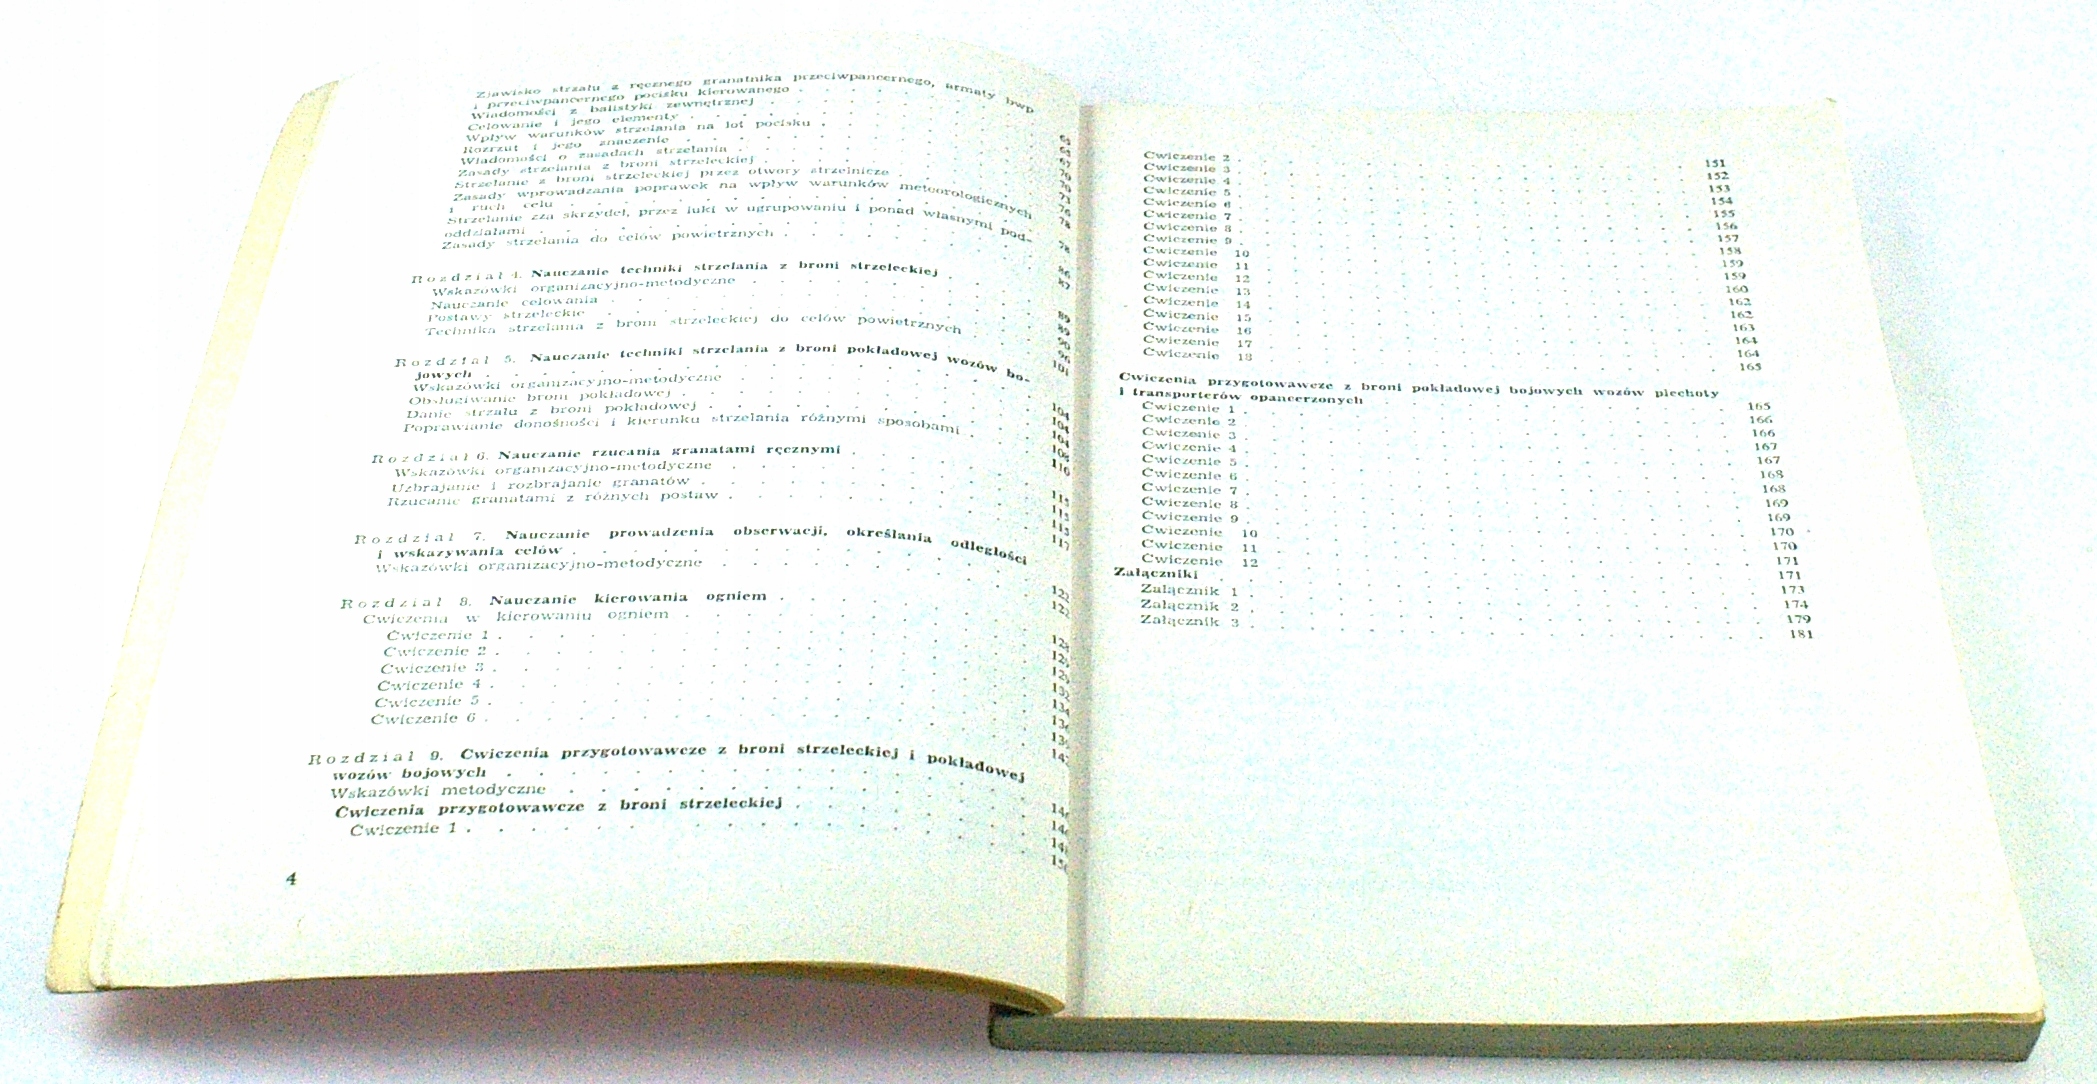 Zjawisko strzału z ręcznego granatnika przeciwpancernego, armaty bwp
i przeciwpancernego pocisku kierowanego . . . . 65
Wiadomości z balistyki zewnętrznej . . . . 65
Celowanie i jego elementy . . . . 67
Wpływ warunków strzelania na lot pocisku . . . . 70
Rozrzut i jego znaczenie . . . . 70
Wiadomości o zasadach strzelania . . . . 73
Zasady strzelania z broni strzeleckiej . . . . 76
Strzelanie z broni strzeleckiej przez otwory strzelnicze . . . . 78
Zasady wprowadzania poprawek na wpływ warunków meteorologicznych
i ruch celu . . . . 78
Strzelanie zza skrzydeł, przez luki w ugrupowaniu i ponad własnymi pod-
oddziałami . . . . 86
Zasady strzelania do celów powietrznych . . . . 87
Rozdział 4. Nauczanie techniki strzelania z broni strzeleckiej . . . . 89
Wskazówki organizacyjno-metodyczne . . . . 89
Nauczanie celowania . . . . 90
Postawy strzeleckie . . . . 96
Technika strzelania z broni strzeleckiej do celów powietrznych . . . . 101
Rozdział 5. Nauczanie techniki strzelania z broni pokładowej wozów bo-
jowych . . . . 104
Wskazówki organizacyjno-metodyczne . . . . 104
Obsługiwanie broni pokładowej . . . . 104
Danie strzału z broni pokładowej . . . . 108
Poprawianie donośności i kierunku strzelania różnymi sposobami . . . . 110
Rozdział 6. Nauczanie rzucania granatami ręcznymi . . . .
Wskazówki organizacyjno-metodyczne . . . .
Uzbrajanie i rozbrajanie granatów . . . .
Rzucanie granatami z różnych postaw . . . . 117
Rozdział 7. Nauczanie prowadzenia obserwacji, określania odległości
i wskazywania celów . . . . 122
Wskazówki organizacyjno-metodyczne . . . . 122
Rozdział 8. Nauczanie kierowania ogniem . . . .
Ćwiczenia w kierowaniu ogniem . . . .
Ćwiczenie 1 . . . .
Ćwiczenie 2 . . . .
Ćwiczenie 3 . . . .
Ćwiczenie 4 . . . .
Ćwiczenie 5 . . . .
Ćwiczenie 6 . . . .
Rozdział 9. Ćwiczenia przygotowawcze z broni strzeleckiej i pokładowej
wozów bojowych . . . .
Wskazówki metodyczne . . . .
Ćwiczenia przygotowawcze z broni strzeleckiej . . . .
Ćwiczenie 1 . . . .
4
Ćwiczenie 2 . . . . 151
Ćwiczenie 3 . . . . 152
Ćwiczenie 4 . . . . 153
Ćwiczenie 5 . . . . 154
Ćwiczenie 6 . . . . 155
Ćwiczenie 7 . . . . 156
Ćwiczenie 8 . . . . 157
Ćwiczenie 9 . . . . 158
Ćwiczenie 10 . . . . 159
Ćwiczenie 11 . . . . 159
Ćwiczenie 12 . . . . 160
Ćwiczenie 13 . . . . 162
Ćwiczenie 14 . . . . 162
Ćwiczenie 15 . . . . 163
Ćwiczenie 16 . . . . 164
Ćwiczenie 17 . . . . 164
Ćwiczenie 18 . . . . 165
Ćwiczenia przygotowawcze z broni pokładowej bojowych wozów piechoty
i transporterów opancerzonych . . . . 165
Ćwiczenie 1 . . . . 166
Ćwiczenie 2 . . . . 166
Ćwiczenie 3 . . . . 167
Ćwiczenie 4 . . . . 167
Ćwiczenie 5 . . . . 168
Ćwiczenie 6 . . . . 168
Ćwiczenie 7 . . . . 169
Ćwiczenie 8 . . . . 169
Ćwiczenie 9 . . . . 170
Ćwiczenie 10 . . . . 170
Ćwiczenie 11 . . . . 171
Ćwiczenie 12 . . . . 171
Załączniki . . . . 173
Załącznik 1 . . . . 174
Załącznik 2 . . . . 179
Załącznik 3 . . . . 181